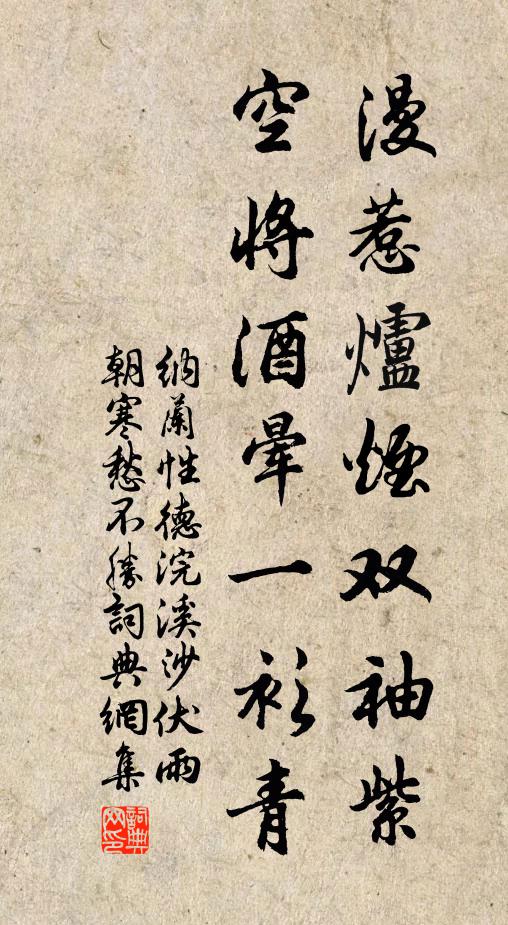 漫惹爐煙双袖紫
空将酒暈一衫青
納蘭性德浣溪沙伏雨
朝寒愁不勝詞典網集
詞典
网印